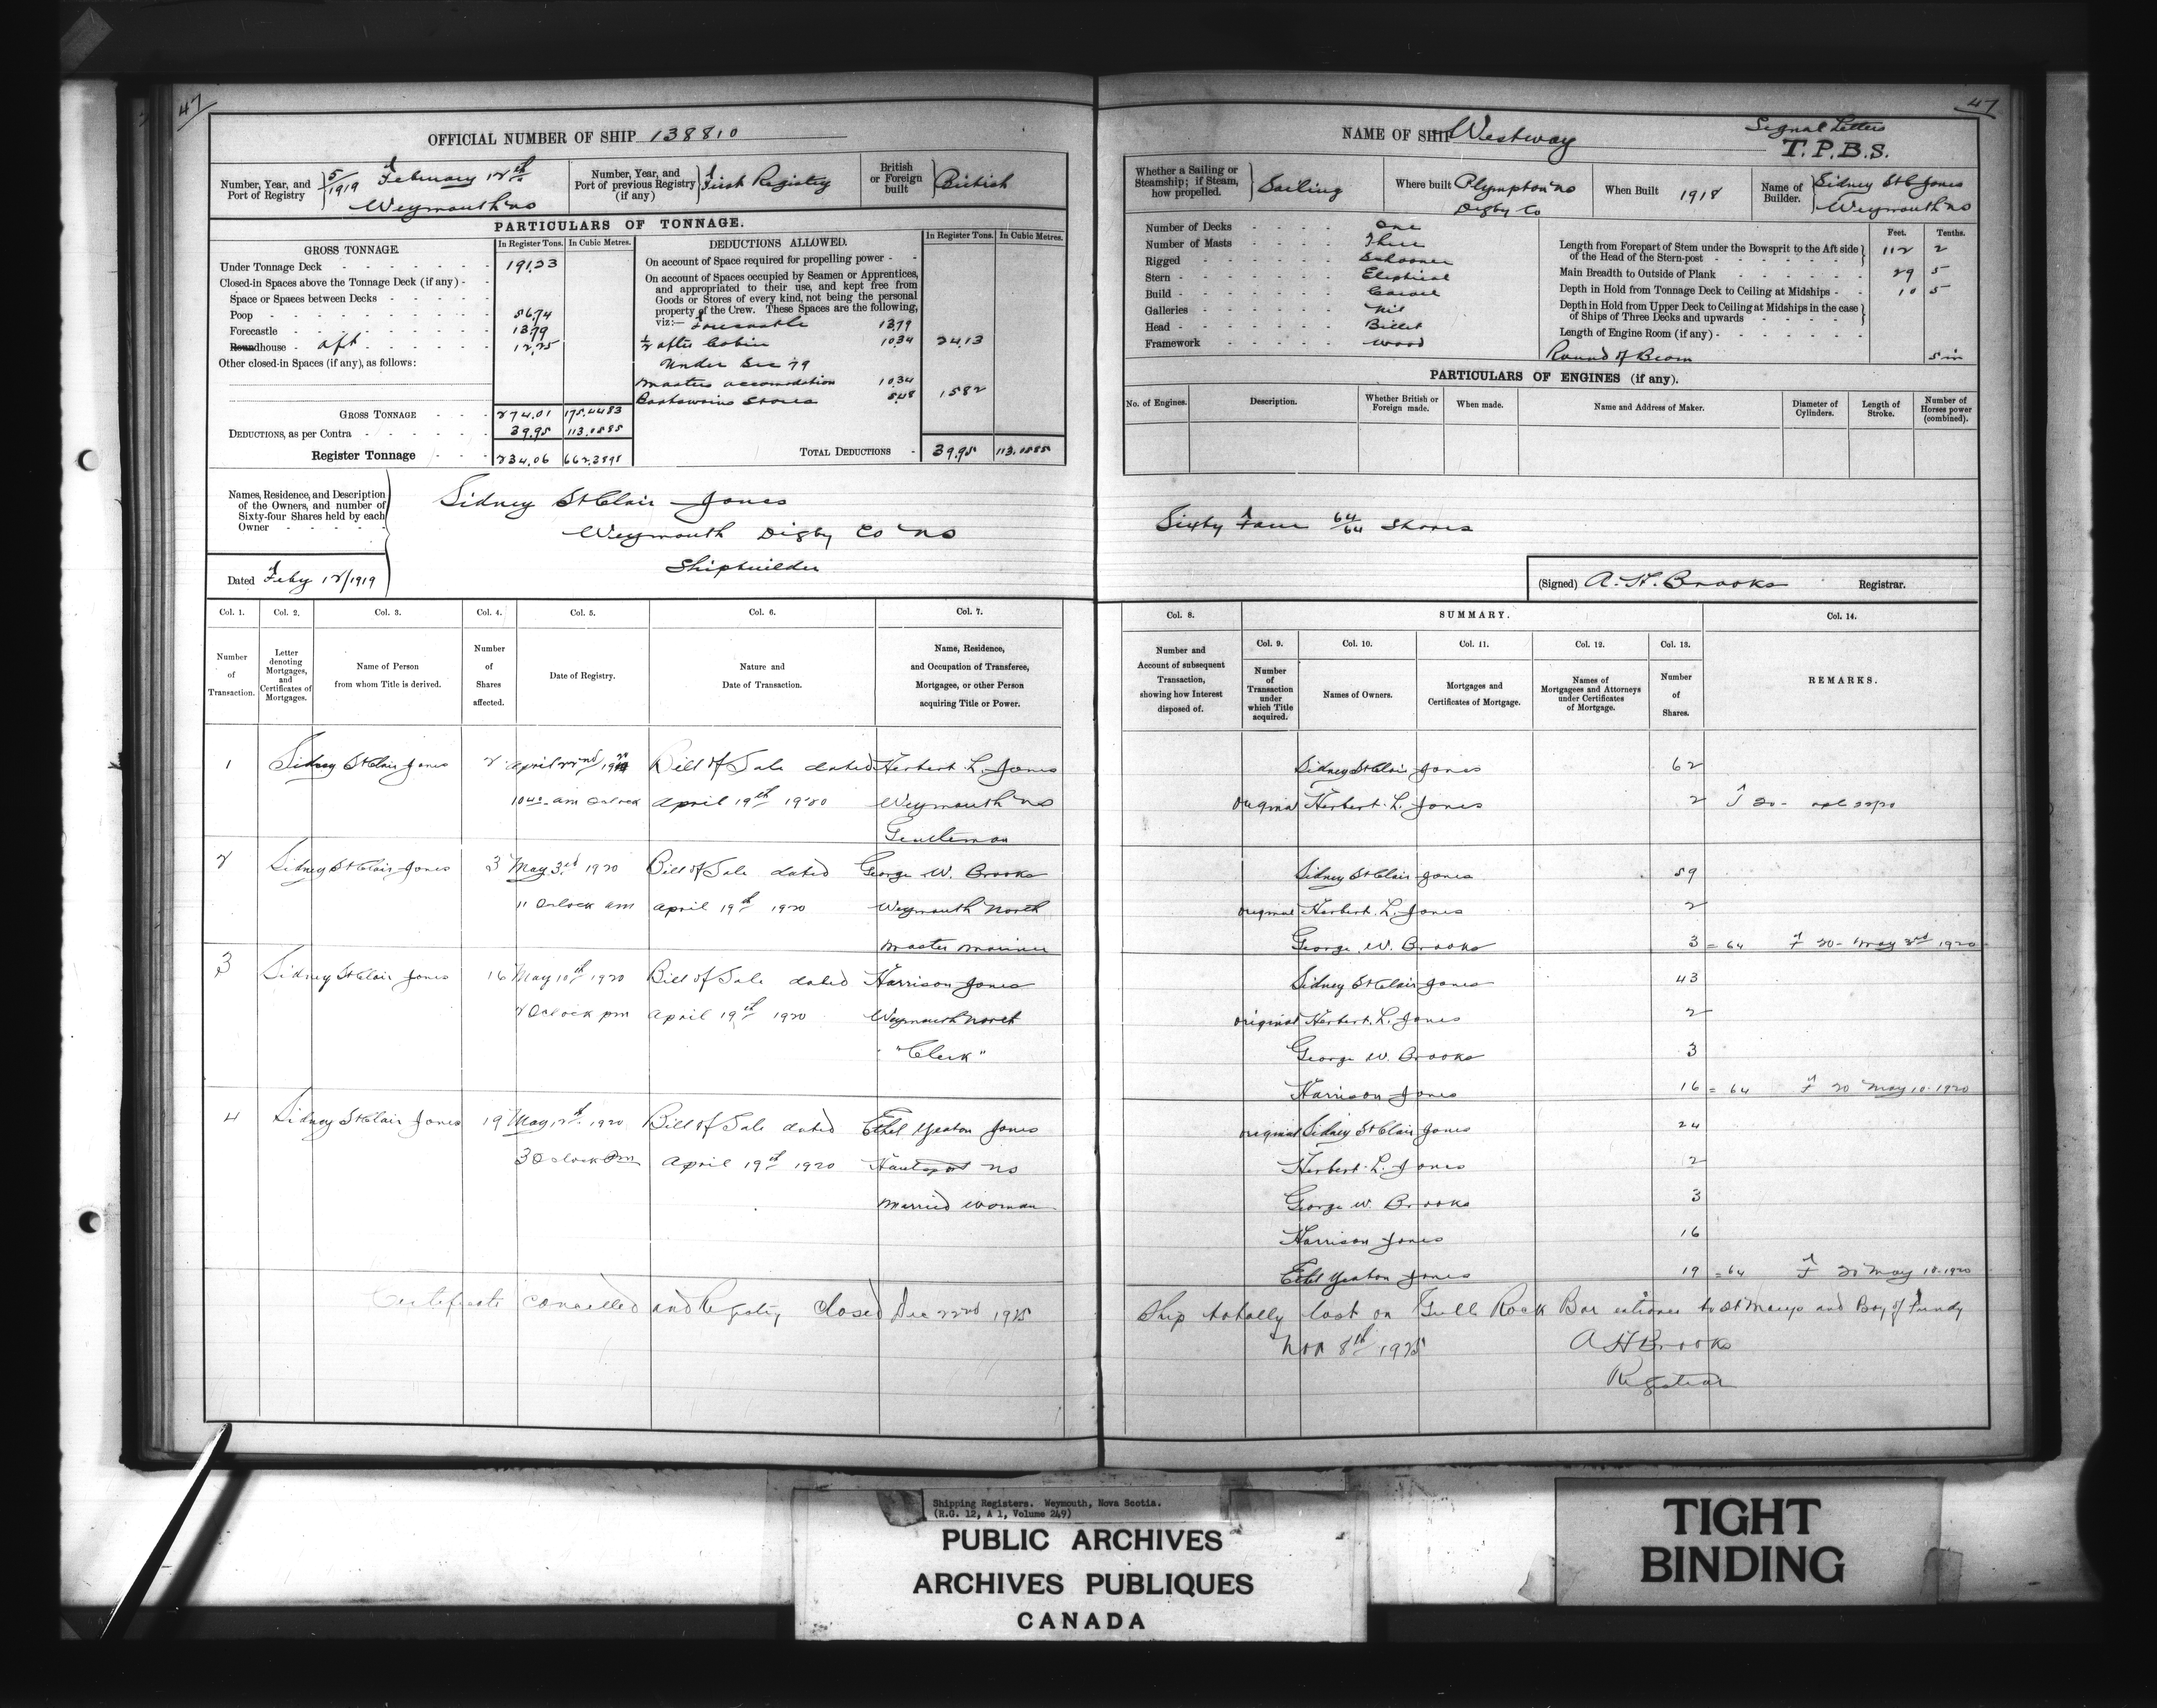 47
OFFICIAL NUMBER OF SHIP 138810
Number, Year, and Port of Registry 5/1919 February 12th Weymouth NS
Number, Year, and Port of previous Registry (if any) First Registry
British or Foreign built British
PARTICULARS OF TONNAGE.
GROSS TONNAGE.
In Register Tons. In Cubic Metres.
Under Tonnage Deck 191.23
Closed-in Spaces above the Tonnage Deck (if any)
Space or Spaces between Decks
Poop 56.74
Forecastle 13.79
Roundhouse aft 12.25
Other closed-in Spaces (if any), as follows:
GROSS TONNAGE 274.01
DEDUCTIONS, as per Contra 39.95 113.0585
Register Tonnage 234.06 662.3898
DEDUCTIONS ALLOWED.
In Register Tons. In Cubic Metres.
On account of Space required for propelling power
On account of Spaces occupied by Seamen or Apprentices, and appropriated to their use, and kept free from Goods or Stores of every kind, not being the personal property of the Crew. These Spaces are the following, viz:— Forecastle 13.79
1/2 after Cabin 10.34 24.13
Under Sec 79
Masters accomodation 10.34
Boatswains Stores 5.48 15.82
TOTAL DEDUCTIONS 39.95 113.0585
Names, Residence, and Description of the Owners, and number of Sixty-four Shares held by each Owner
Sidney St Clair Jones
Weymouth Digby Co NS
Shipbuilder
Dated Feby 12/1919
Col. 1. Col. 2. Col. 3. Col. 4. Col. 5. Col. 6. Col. 7.
Number of Transaction.
Letter denoting Mortgages, and Certificates of Mortgages.
Name of Person from whom Title is derived.
Number of Shares affected.
Date of Registry.
Nature and Date of Transaction.
Name, Residence, and Occupation of Transferee, Mortgagee, or other Person acquiring Title or Power.
1 Sidney St Clair Jones 2 April 22nd 1920 Bill of Sale dated Herbert L. Jones
10 40 am Oclock April 19th 1920 Weymouth NS
Gentleman
2 Sidney St Clair Jones 3 May 3rd 1920 Bill of Sale dated George W. Brooks
11 Oclock am April 19th 1920 Weymouth North
Master Mariner
3 Sidney St Clair Jones 16 May 10th 1920 Bill of Sale dated Harrison Jones
2 Oclock pm April 19th 1920 Weymouth North
"Clerk"
4 Sidney St Clair Jones 19 May 12th 1920 Bill of Sale dated Ethel Yeaton Jones
3 Oclock Pm April 19th 1920 Hantsport NS
Married Woman
Certificate cancelled and Registry Closed Dec 22nd 1925
47
NAME OF SHIP Westway
Signal Letters
T.P.B.S.
Whether a Sailing or Steamship; if Steam, how propelled. Sailing
Where built Plympton NS Digby Co
When Built 1918
Name of Builder. Sidney St C Jones Weymouth NS
Number of Decks One
Number of Masts Three
Rigged Schooner
Stern Eliptical
Build Carvel
Galleries Nil
Head Billet
Framework Wood
Feet. Tenths.
Length from Forepart of Stem under the Bowsprit to the Aft side of the Head of the Stern-post 112 2
Main Breadth to Outside of Plank 29 5
Depth in Hold from Tonnage Deck to Ceiling at Midships 10 5
Depth in Hold from Upper Deck to Ceiling at Midships in the case of Ships of Three Decks and upwards
Length of Engine Room (if any)
Round of Beam 5 in
PARTICULARS OF ENGINES (if any).
No. of Engines.
Description.
Whether British or Foreign made.
When made.
Name and Address of Maker.
Diameter of Cylinders.
Length of Stroke.
Number of Horses power (combined).
Sixty Four 64/64 Shares
(Signed) A. H. Brooks Registrar.
Col. 8. SUMMARY. Col. 14.
Col. 9. Col. 10. Col. 11. Col. 12. Col. 13.
Number and Account of subsequent Transaction, showing how Interest disposed of.
Number of Transaction under which Title acquired.
Names of Owners.
Mortgages and Certificates of Mortgage.
Names of Mortgagees and Attorneys under Certificates of Mortgage.
Number of Shares.
REMARKS.
Sidney St Clair Jones 62
original Herbert L. Jones 2
Sidney St Clair Jones 59
original Herbert L. Jones 2
George W. Brooks 3 = 64 F 20 - May 3rd 1920
Sidney St Clair Jones 43
original Herbert L. Jones 2
George W. Brooks 3
Harrison Jones 16 = 64 F 20 May 10-1920
original Sidney St Clair Jones 24
Herbert L. Jones 2
George W. Brooks 3
Harrison Jones 16
Ethel Yeaton Jones 19 = 64 F 20 May
Ship totally lost on Gull Rock Bar entrance to St Marys and Bay of Fundy
Nov 8th 1925 A H Brooks
Registrar
Shipping Registers. Weymouth, Nova Scotia.
(R.G. 12, A 1, Volume 249)
PUBLIC ARCHIVES
ARCHIVES PUBLIQUES
CANADA
TIGHT
BINDING